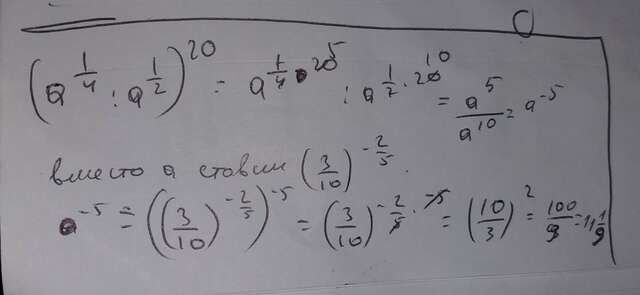 (a^{1/4} : a^{1/2})^{20} = a^{1/4 · 20^5} : a^{1/2 · 20^{10}} = a^5/a^{10} = a^{-5}
вместо a ставим (3/10)^{-2/5}.
a^{-5} = ((3/10)^{-2/5})^{-5} = (3/10)^{-2/5 · -5} = (10/3)^2 = 100/9 = 11 1/9